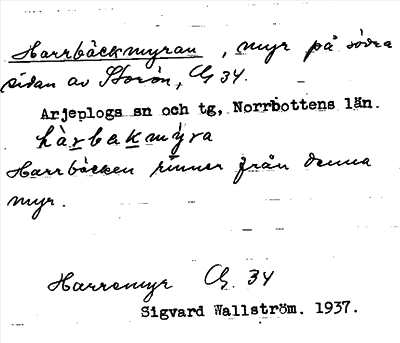 Harrbäckmyran, myr på södra
sidan av Storön, G 34.
Arjeplogs sn och tg, Norrbottens län.
hàrbakmýra
Harrbäcken rinner från denna
myr.
Harremyr G. 34
Sigvard Wallström. 1937.